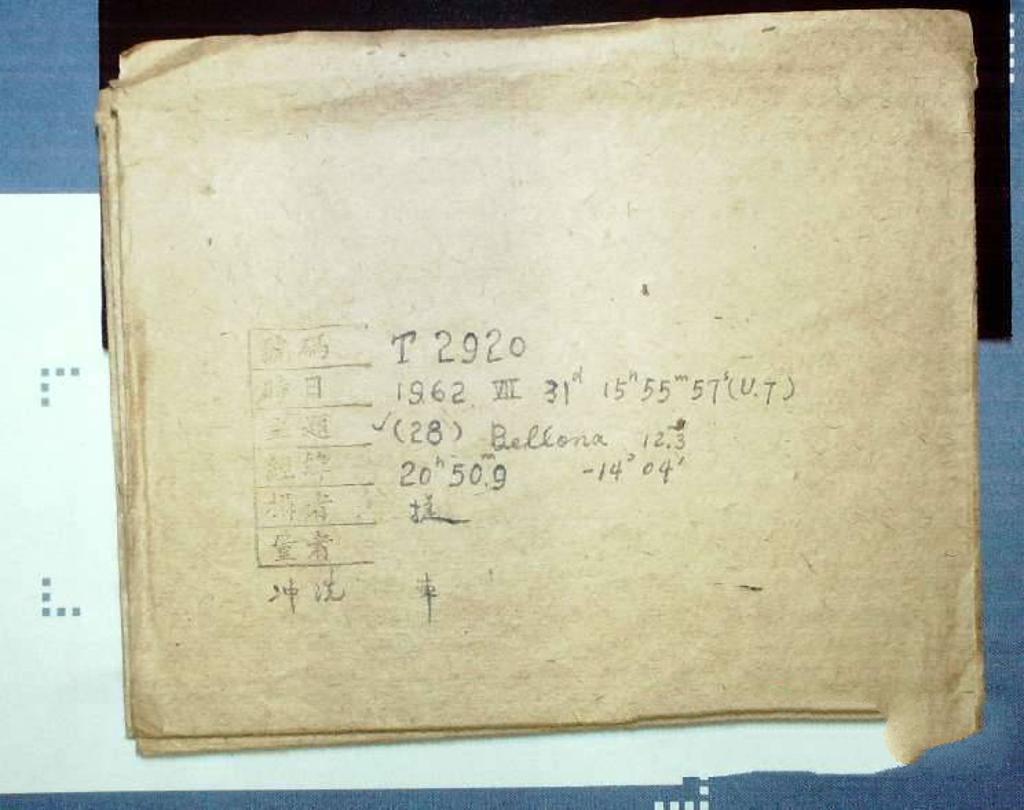 號碼 T 2920
時日 1962 VII 31ᵈ 15ʰ 55ᵐ 57ˢ (U.T)
主題 ✓(28) Bellona 12.3
經緯 20ʰ 50ᵐ.9 -14° 04′
攝者
量者
冲洗